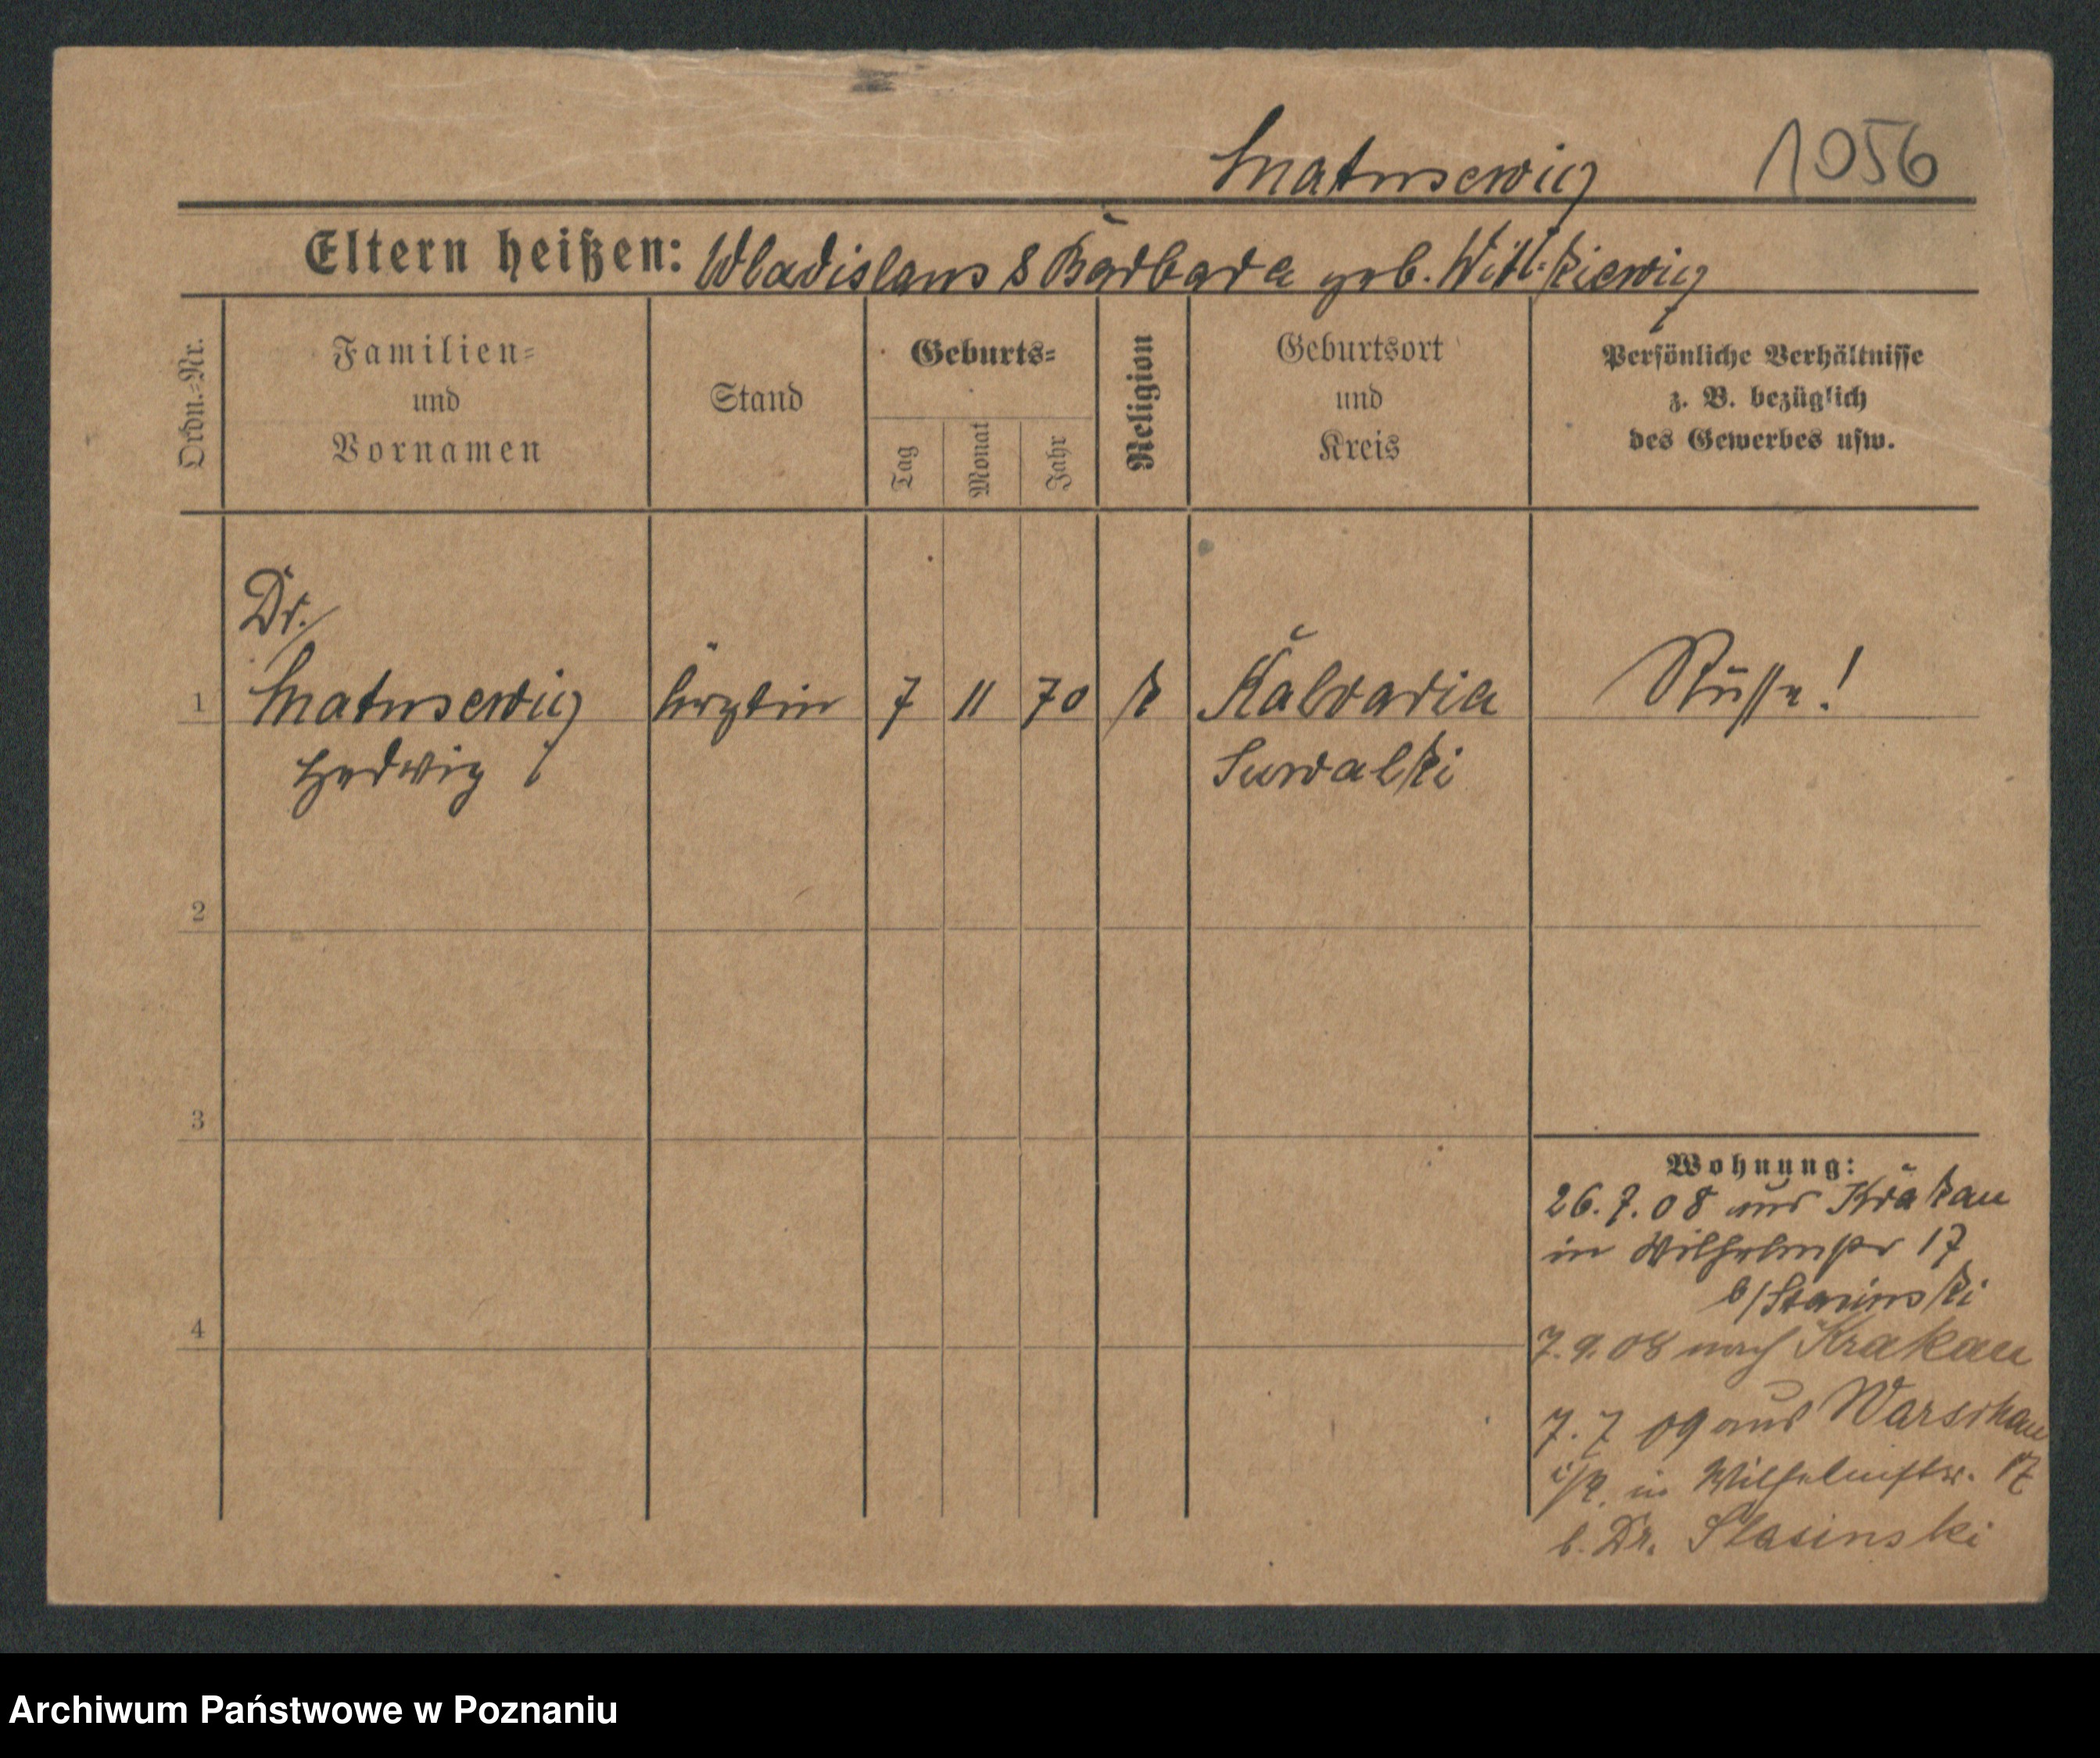 Matusewicz 1056
Eltern heißen: Wladislaus & Barbara geb. Witkiewicz
Ordn.-Nr.
Familien-
und
Vornamen
Stand
Geburts-
Tag
Monat
Jahr
Religion
Geburtsort
und
Kreis
Persönliche Verhältnisse
z. B. bezüglich
des Gewerbes usw.
Dr.
1 Matusewicz Ärztin 7 11 70 k Kalvaria Russe!
Hedwig Suwalki
2
3
4
Wohnung:
26.7.08 aus Krakau
in Wilhelmstr 17
b/Stasinski
7.9.08 nach Krakau
7.7 09 aus Warschau
in Wilhelmstr. 17
b. Dr. Stasinski
Archiwum Państwowe w Poznaniu